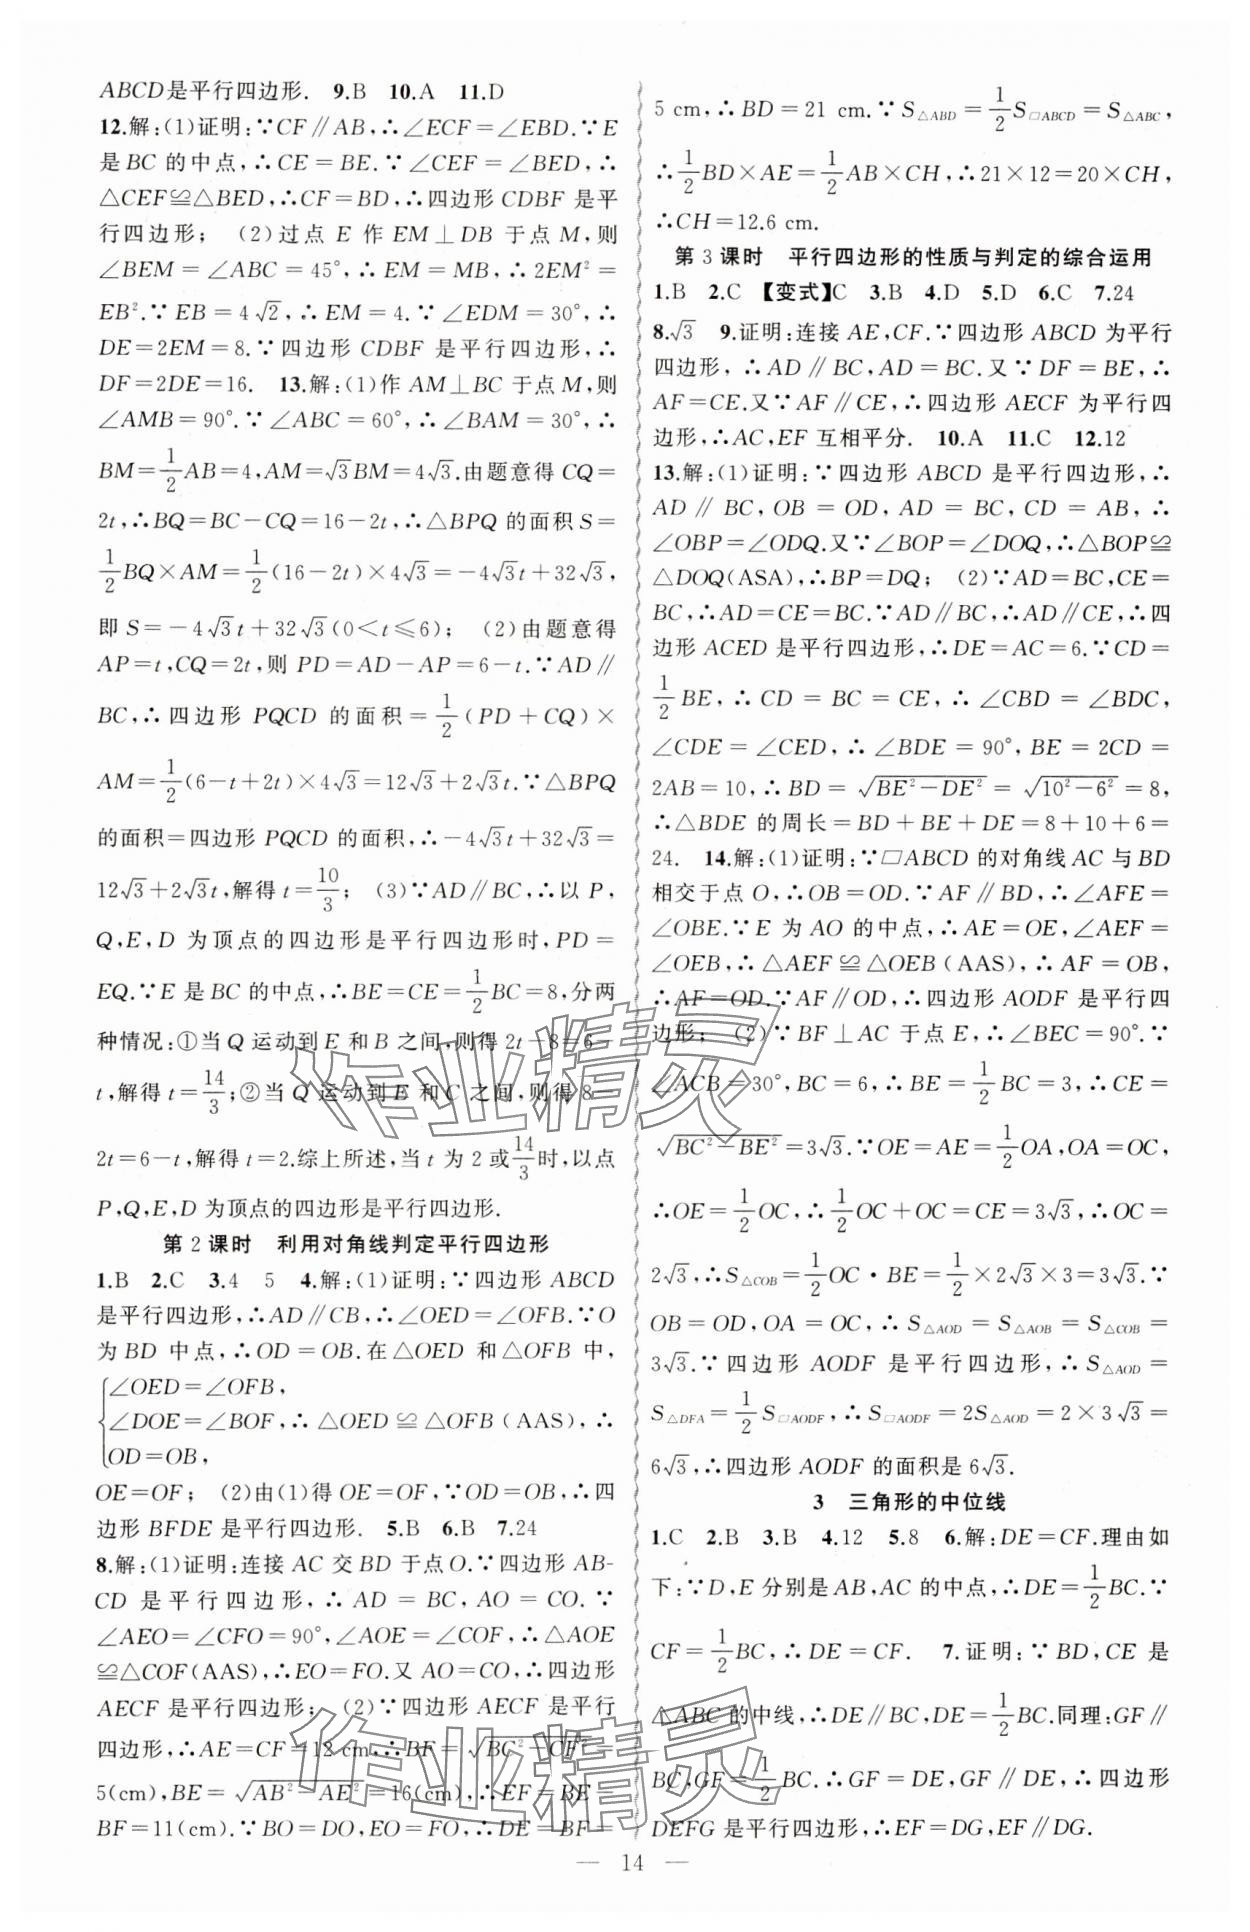 ABCD是平行四边形. 9.B 10.A 11.D
12.解:(1)证明:∵CF∥AB,∴∠ECF=∠EBD.∵E
是BC的中点,∴CE=BE.∵∠CEF=∠BED,∴
△CEF≌△BED,∴CF=BD,∴四边形CDBF是平
行四边形; (2)过点E作EM⊥DB于点M,则
∠BEM=∠ABC=45°,∴EM=MB,∴2EM²=
EB².∵EB=4√2,∴EM=4.∵∠EDM=30°,∴
DE=2EM=8.∵四边形CDBF是平行四边形,∴
DF=2DE=16. 13.解:(1)作AM⊥BC于点M,则
∠AMB=90°.∵∠ABC=60°,∴∠BAM=30°,∴
BM=1/2AB=4,AM=√3BM=4√3.由题意得CQ=
2t,∴BQ=BC-CQ=16-2t,∴△BPQ的面积S=
1/2BQ×AM=1/2(16-2t)×4√3=-4√3t+32√3,
即S=-4√3t+32√3(0<t≤6); (2)由题意得
AP=t,CQ=2t,则PD=AD-AP=6-t.∵AD∥
BC,∴四边形PQCD的面积=1/2(PD+CQ)×
AM=1/2(6-t+2t)×4√3=12√3+2√3t.∵△BPQ
的面积=四边形PQCD的面积,∴-4√3t+32√3=
12√3+2√3t,解得t=10/3; (3)∵AD∥BC,∴以P,
Q,E,D为顶点的四边形是平行四边形时,PD=
EQ.∵E是BC的中点,∴BE=CE=1/2BC=8,分两
种情况:①当Q运动到E和B之间,则得2t-8=6-
t,解得t=14/3;②当Q运动到E和C之间,则得8-
2t=6-t,解得t=2.综上所述,当t为2或14/3时,以点
P,Q,E,D为顶点的四边形是平行四边形.
第2课时 利用对角线判定平行四边形
1.B 2.C 3.4 5 4.解:(1)证明:∵四边形ABCD
是平行四边形,∴AD∥CB,∴∠OED=∠OFB.∵O
为BD中点,∴OD=OB.在△OED和△OFB中,
∠OED=∠OFB,
∠DOE=∠BOF,∴△OED≌△OFB(AAS),∴
OD=OB,
OE=OF; (2)由(1)得OE=OF,∵OD=OB,∴四
边形BFDE是平行四边形. 5.B 6.B 7.24
8.解:(1)证明:连接AC交BD于点O.∵四边形AB-
CD是平行四边形,∴AD=BC,AO=CO.∵
∠AEO=∠CFO=90°,∠AOE=∠COF,∴△AOE
≌△COF(AAS),∴EO=FO.又AO=CO,∴四边形
AECF是平行四边形; (2)∵四边形AECF是平行
四边形,∴AE=CF=12 cm,∴BF=√(BC²-CF²)=
5(cm),BE=√(AB²-AE²)=16(cm),∴EF=BE-
BF=11(cm).∵BO=DO,EO=FO,∴DE=BF=
5 cm,∴BD=21 cm.∵S△ABD=1/2S□ABCD=S△ABC,
∴1/2BD×AE=1/2AB×CH,∴21×12=20×CH,
∴CH=12.6 cm.
第3课时 平行四边形的性质与判定的综合运用
1.B 2.C 【变式】C 3.B 4.D 5.D 6.C 7.24
8.√3 9.证明:连接AE,CF.∵四边形ABCD为平行
四边形,∴AD∥BC,AD=BC.又∵DF=BE,∴
AF=CE.又∵AF∥CE,∴四边形AECF为平行四
边形,∴AC,EF互相平分. 10.A 11.C 12.12
13.解:(1)证明:∵四边形ABCD是平行四边形,∴
AD∥BC,OB=OD,AD=BC,CD=AB,∴
∠OBP=∠ODQ.又∵∠BOP=∠DOQ,∴△BOP≌
△DOQ(ASA),∴BP=DQ; (2)∵AD=BC,CE=
BC,∴AD=CE=BC.∵AD∥BC,∴AD∥CE,∴四
边形ACED是平行四边形,∴DE=AC=6.∵CD=
1/2BE,∴CD=BC=CE,∴∠CBD=∠BDC,
∠CDE=∠CED,∴∠BDE=90°,BE=2CD=
2AB=10,∴BD=√(BE²-DE²)=√(10²-6²)=8,
∴△BDE的周长=BD+BE+DE=8+10+6=
24. 14.解:(1)证明:∵□ABCD的对角线AC与BD
相交于点O,∴OB=OD.∵AF∥BD,∴∠AFE=
∠OBE.∵E为AO的中点,∴AE=OE,∠AEF=
∠OEB,∴△AEF≌△OEB(AAS),∴AF=OB,
∴AF=OD.∵AF∥OD,∴四边形AODF是平行四
边形; (2)∵BF⊥AC于点E,∴∠BEC=90°.∵
∠ACB=30°,BC=6,∴BE=1/2BC=3,∴CE=
√(BC²-BE²)=3√3.∵OE=AE=1/2OA,OA=OC,
∴OE=1/2OC,∴1/2OC+OC=CE=3√3,∴OC=
2√3,∴S△COB=1/2OC·BE=1/2×2√3×3=3√3.∵
OB=OD,OA=OC,∴S△AOD=S△AOB=S△COB=
3√3.∵四边形AODF是平行四边形,∴S△AOD=
S△DFA=1/2S□AODF,∴S□AODF=2S△AOD=2×3√3=
6√3,∴四边形AODF的面积是6√3.
3 三角形的中位线
1.C 2.B 3.B 4.12 5.8 6.解:DE=CF.理由如
下:∵D,E分别是AB,AC的中点,∴DE=1/2BC.∵
CF=1/2BC,∴DE=CF. 7.证明:∵BD,CE是
△ABC的中线,∴DE∥BC,DE=1/2BC.同理:GF∥
BC,GF=1/2BC.∴GF=DE,GF∥DE,∴四边形
DEFG是平行四边形,∴EF=DG,EF∥DG.
— 14 —
作业精灵
作业精灵